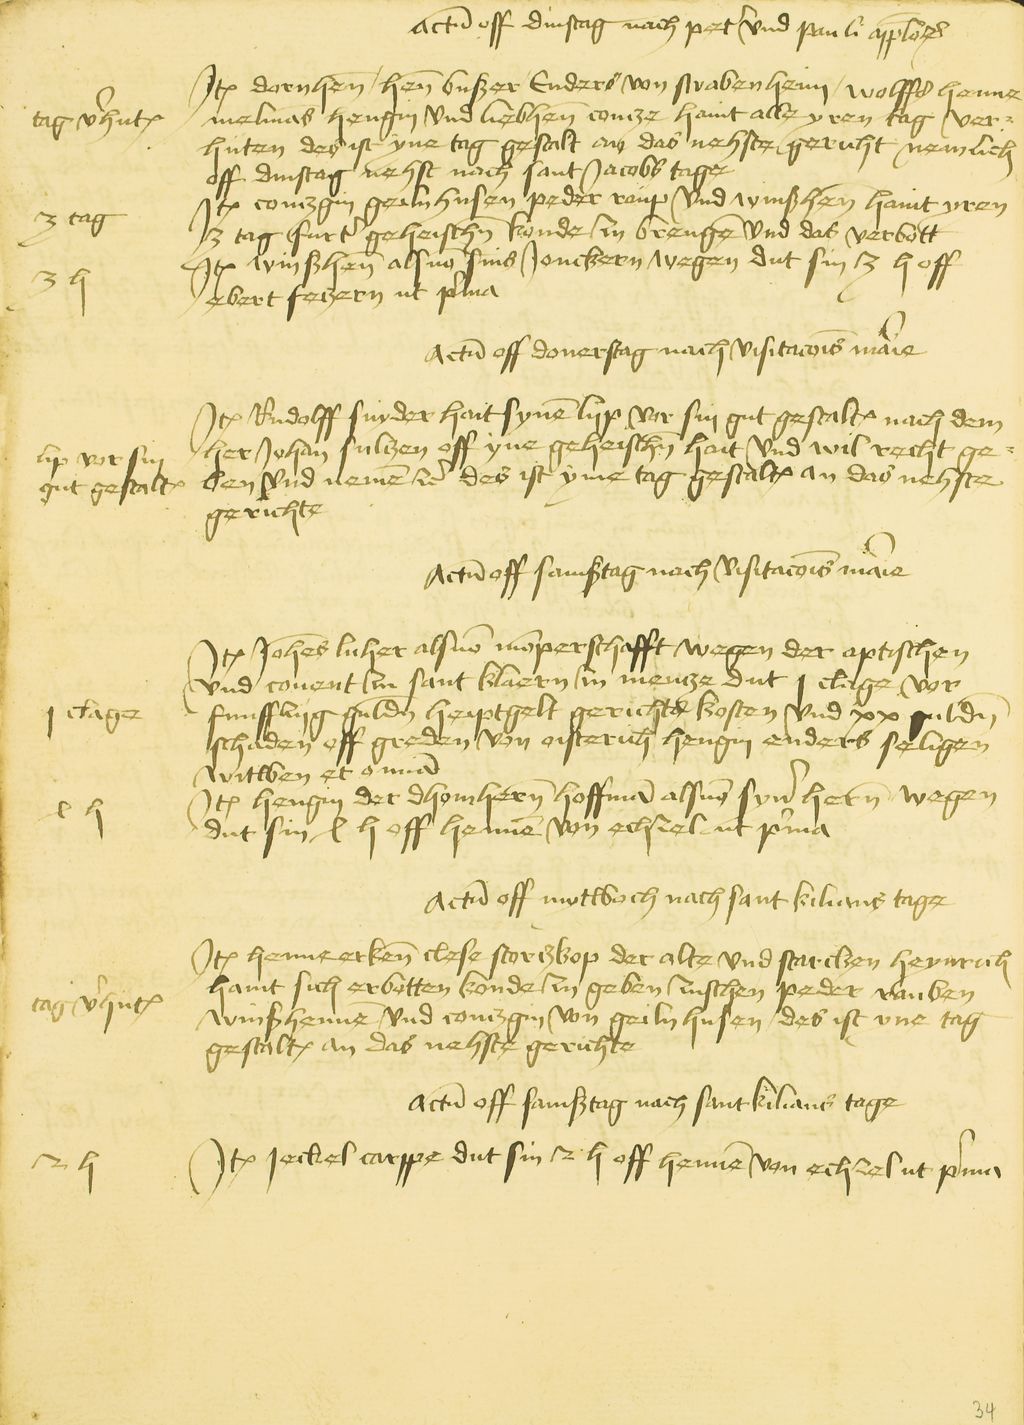 Actu(m) off dinstag nach pet(ri) vnd pauli ap(osto)lor(um)
Jt(em) dornhen(n) hen(n) buszer Enders von strabenheim wolffs henne
tag v(er)hut(en) melma(n)s hengin vnd liebhen(n) contze haint alle yren tag ver-
huten des ist yne tag gestalt an das nehste gericht nemlich
off dinstag nehst nach sant Jacobs tage
3 tag Jt(em) contzgin geilnhusen peder raup vnd winszhen(n) haint yren
3 tag furt(er) geheischn konde zu brenge(n) vnd das verbott
3 h Jt(em) winszhen(n) als vo(n) sins Jonckern wegen dut sin 3 h off
ebert fetzern ut p(ri)ma
Actu(m) off donerstag nach visitac(i)o(n)is ma(r)ie
Jt(em) Rudolff snyder hait syne(n) lip vor sin gut gestalt nach dem
lip vor sin her Joha(n) sultzen off yne geheischn hait vnd wil recht ge-
gut gestalt ben vnd neme(n) (et)c(etera) des ist yme tag gestalt an das nehste
gerichte
Actu(m) off samsztag nach visitac(i)o(n)is ma(r)ie
Jt(em) Joh(ann)es luher als vo(n) mo(m)perschafft wegen der aptischen
vnd couent zu sant klaern zu mentze dut j clage vor
j clage funfftzig guld(e)n heiptgelt gerichts kosten vnd xx guld(e)n
schaden off greden von oisterich hengin enders seligen
witwen et o(mn)ia
x h Jt(em) hengin der dhomhern(n) hoffma(n) als vo(n) syn(er) hern(n) wegen
dut sin x h off henne(n) von echzel ut p(ri)ma
Actu(m) off mitwoch nach sant kilians tage
Jt(em) henne erken(n) clese stortzkop der alte vnd starcken heynrich
tag v(er)hut(en) haint sich erbotten konde zu geben zuschen peder rauben
winszhenne(n) vnd contzgin von geilnhusen des ist yne tag
gestalt an das nehste gerichte
Actu(m) off samsztag nach sant kilians tage
2 h Jt(em) jeckel carppe dut sin 2 h off henne(n) von echzel ut p(ri)ma
34